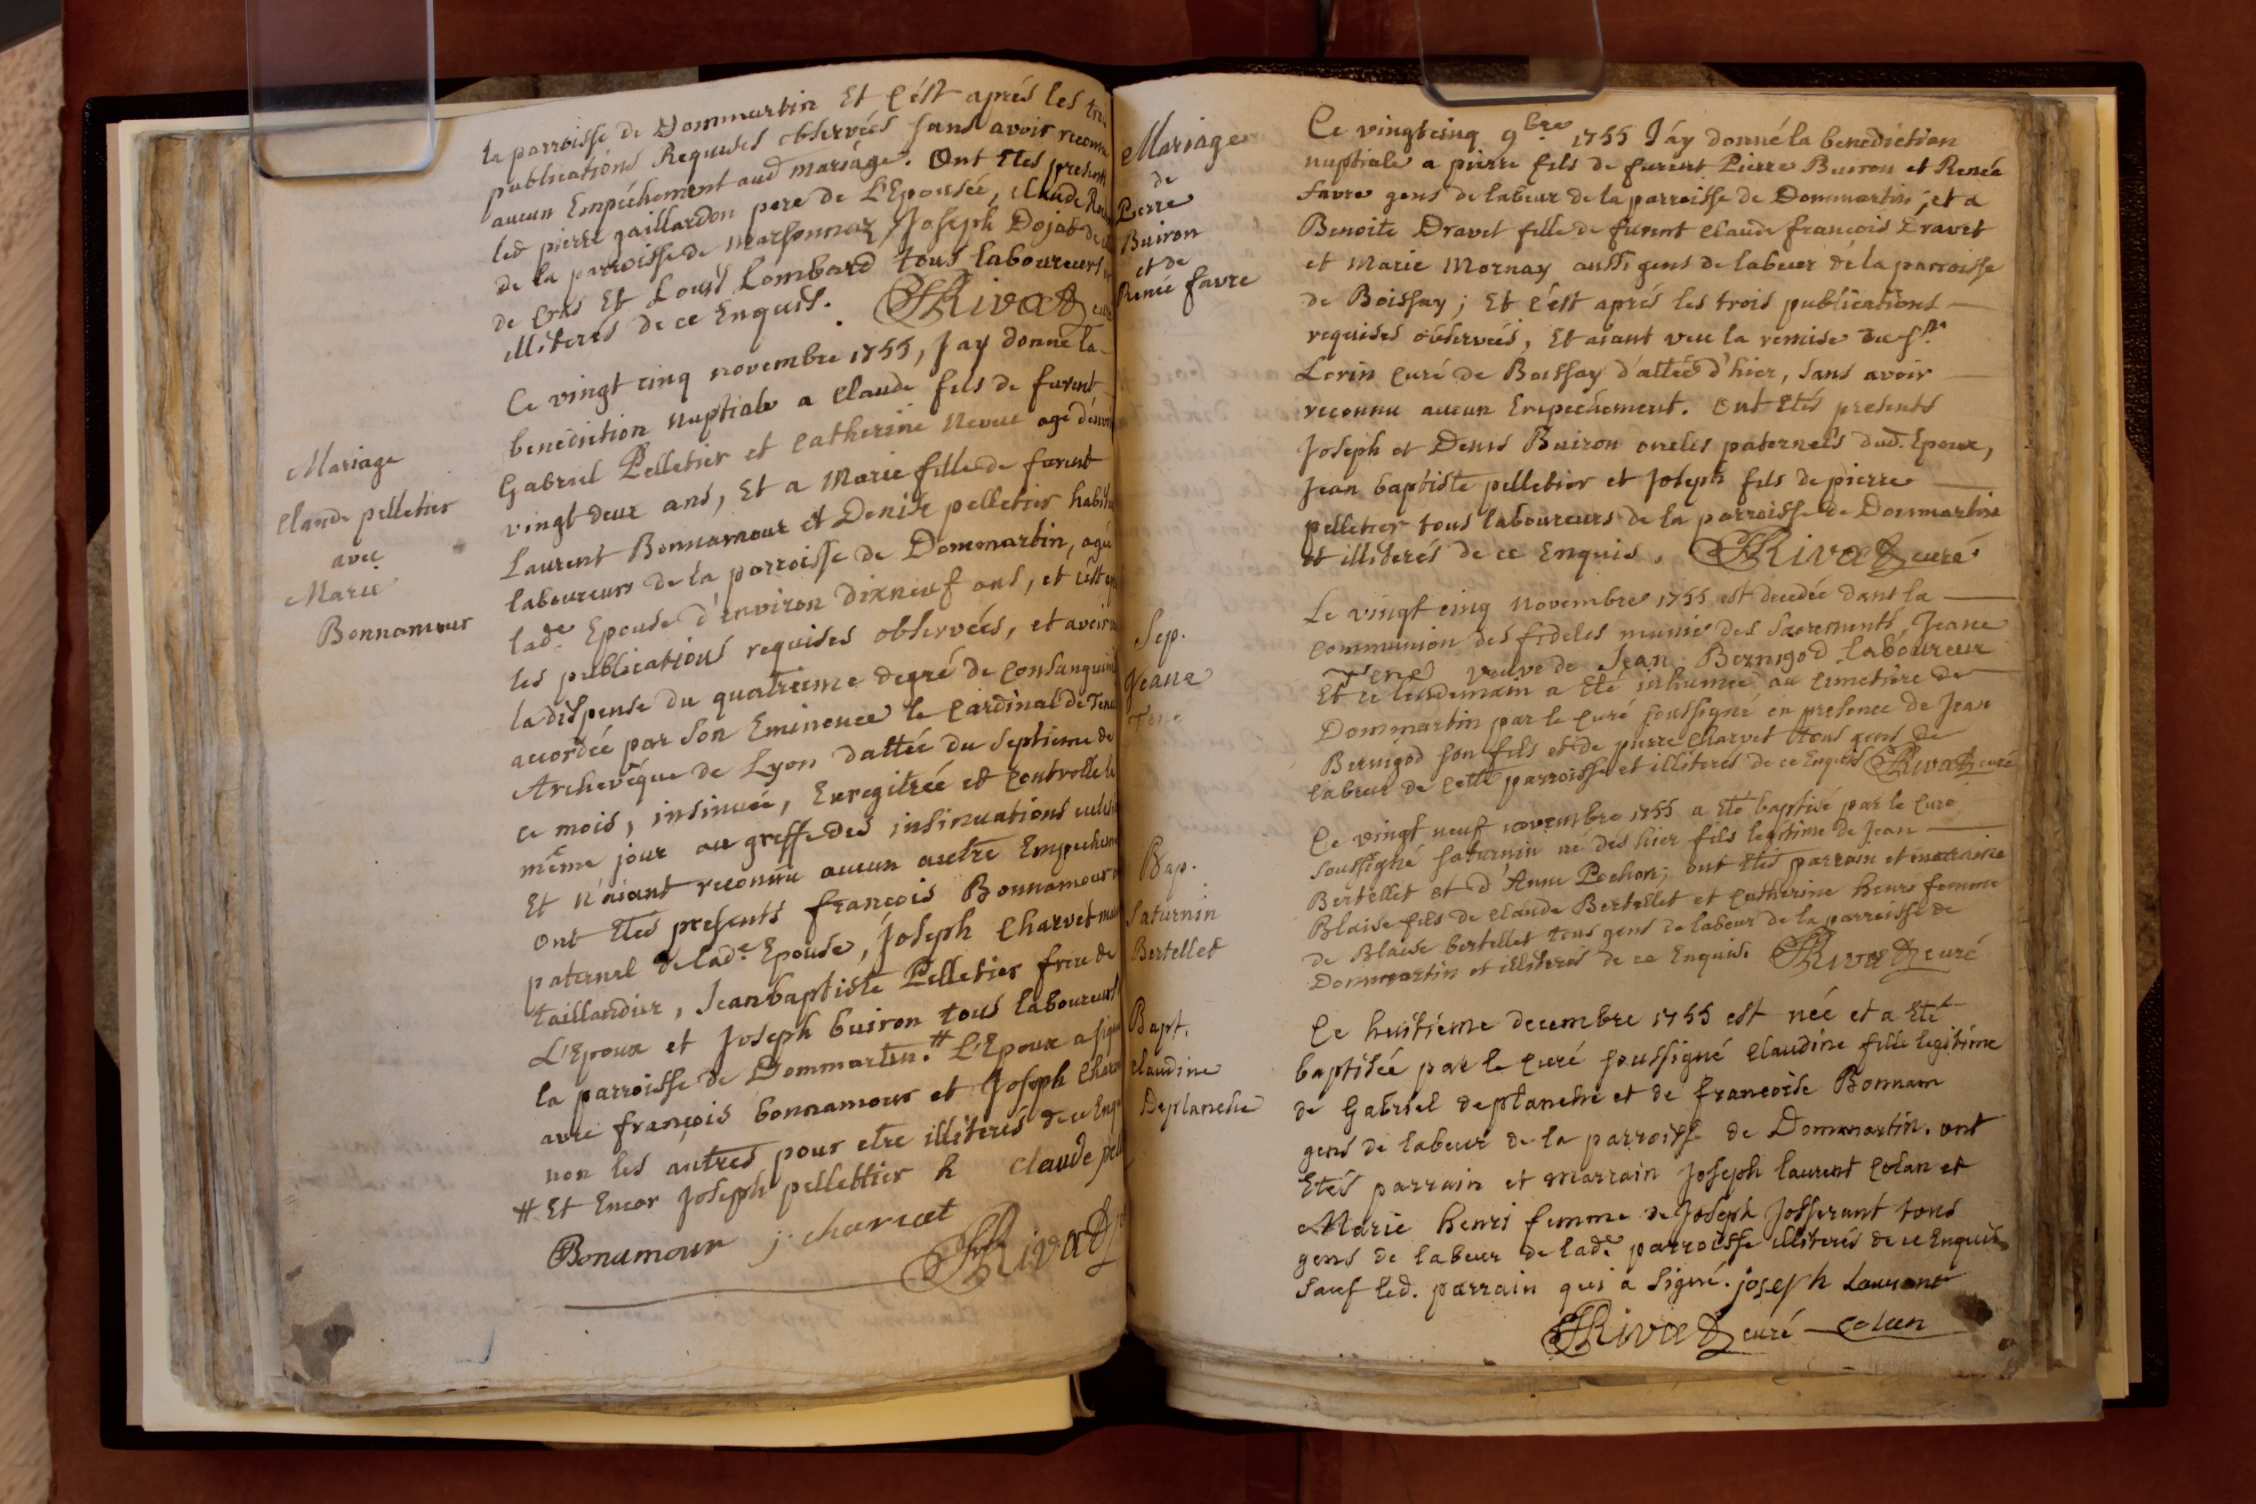 la parroisse de Dommartin Et c'ést aprés les
publications Requises observées sans avoir
aucun Empéchement aud mariáge. Ont Etes presents
led pierre gaillardon pere de L'Epousée, claude
de la parroisse de marsonnaz, Joseph Dojat de
de cras Et Louis Lombard tous laboureurs
illiterés de ce Enquis. Rivat curé
Mariage
claude pelletier
avec
Marie
Bonnamour
Ce vingt cinq novembre 1755, J'ay donné la
benediction nuptiale a claude fils de furent
Gabriel Pelletier et catherine neveu agé
vingt deux ans, Et a Marie fille de furent
Laurent Bonnamour et Denise pelletier
laboureurs de la parroisse de Dommartin, agée
lade Epouse d'environ dixneuf ans, et c'est
les publications requises observées, et avoir
la dispense du quatrieme degré de
accordée par son Eminence le cardinal de
Archevêque de Lyon dattée du septieme de
ce mois, insinuée, Enregitrée et controlle le
même jour au greffe des insinuations
Et n'aiant reconnu aucun autre
ont Etes presents françois Bonnamour
paternel de lade Epouse, Joseph charvet
taillandier, Jean baptiste Pelletier frere de
L'Epoux et Joseph buiron tous laboureurs
la parroisse de Dommartin.# L'Epoux a
avec françois bonnamour et Joseph
non les autres pour etre illiterés de ce
# Et Encor Joseph pellettier claude
Bonamour j. charvat
Rivat
Mariage
de
Pierre
Buiron
et de
Renée favre
Ce vingtcinq 9bre 1755 J'áy donné la benediction
nuptiale a pierre fils de furent Pierre Buiron et Renée
favre gens de labeur de la parroisse de Dommartin; et a
Benoite Dravet fille de furent claude francois Dravet
et Marie Mornay aussi gens de labeur de la parroisse
de Boissay; Et c'est aprés les trois publications
requises observées, Et aiant veu la remise du Sr.
Lorin curé de Boissay dattée d'hier, sans avoir
reconnu aucun Empechement. Ont Etés presents
Joseph et Denis Buiron oncles paternels dud. Epoux,
Jean baptiste pelletier et Joseph fils de pierre
pelletier tous laboureurs de la parroisse de Dommartin
et illiterés de ce Enquis. Rivat curé
Sep.
Jeane
Le vingt cinq novembre 1755 est decedée dans la
communion des fideles munie des sacrements Jeane
veuve de Jean Bernigod laboureur
Et le lendemain a Eté inhumée au cimetiere de
Dommartin par le curé soussigné en presence de Jean
Bernigod son fils et de pierre charvet tous gens de
labeur de cette parroisse et illiterés de ce Enquis Rivat curé
Bap.
Saturnin
Bertellet
Ce vingt neuf novembre 1755 a Eté baptisé par le curé
soussigné saturnin né dés hier fils legitime de Jean
Bertellet et d'Anne Pochon; ont Etes parrain et marraine
Blaise fils de claude Bertellet et catherine henri femme
de Blaise bertellet tous gens de labeur de la parroisse de
Dommartin et illiterés de ce Enquis. Rivat curé
Bapt.
claudine
Deplanche
Ce huitième decembre 1755 est née et a Eté
baptisée par le curé soussigné claudine fille legitime
de Gabriel deplanche et de francoise Bonnam
gens de labeur de la parroisse de Dommartin. ont
Etés parrain et marrain Joseph laurent colan et
Marie henri femme de Joseph Josserant tous
gens de labeur de lade parroisse illiterés de ce Enquis
sauf led. parrain qui a signé. joseph Laurant
Rivat curé colan